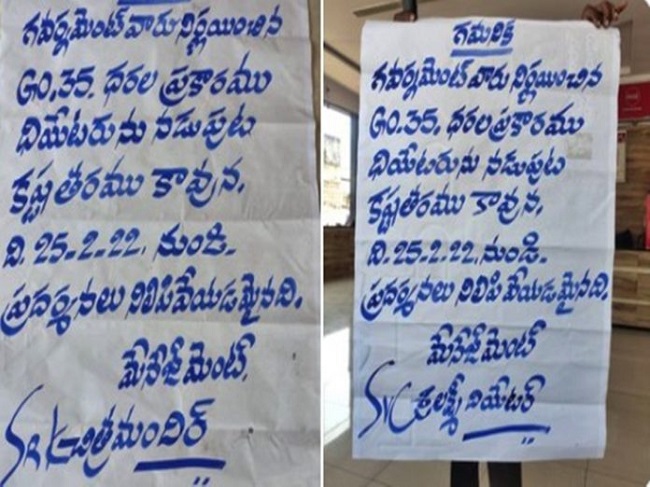 గవర్నమెంట్ వారు నిర్ణయించిన
GO.35. ధరల ప్రకారము
థియేటరును నడుపుట
కష్టతరము కావున.
ది. 25-2-22. నుండి.
ప్రదర్శనలు నిలిపివేయడమైనది.
మేనేజ్‌మెంట్.
SRK చిత్రమందిర్
గమనిక
గవర్నమెంట్ వారు నిర్ణయించిన
GO.35. ధరల ప్రకారము
థియేటరును నడుపుట
కష్టతరము కావున.
ది. 25-2-22. నుండి.
ప్రదర్శనలు నిలిపివేయడమైనది.
మేనేజ్‌మెంట్
SVC శ్రీలక్ష్మీ థియేటర్